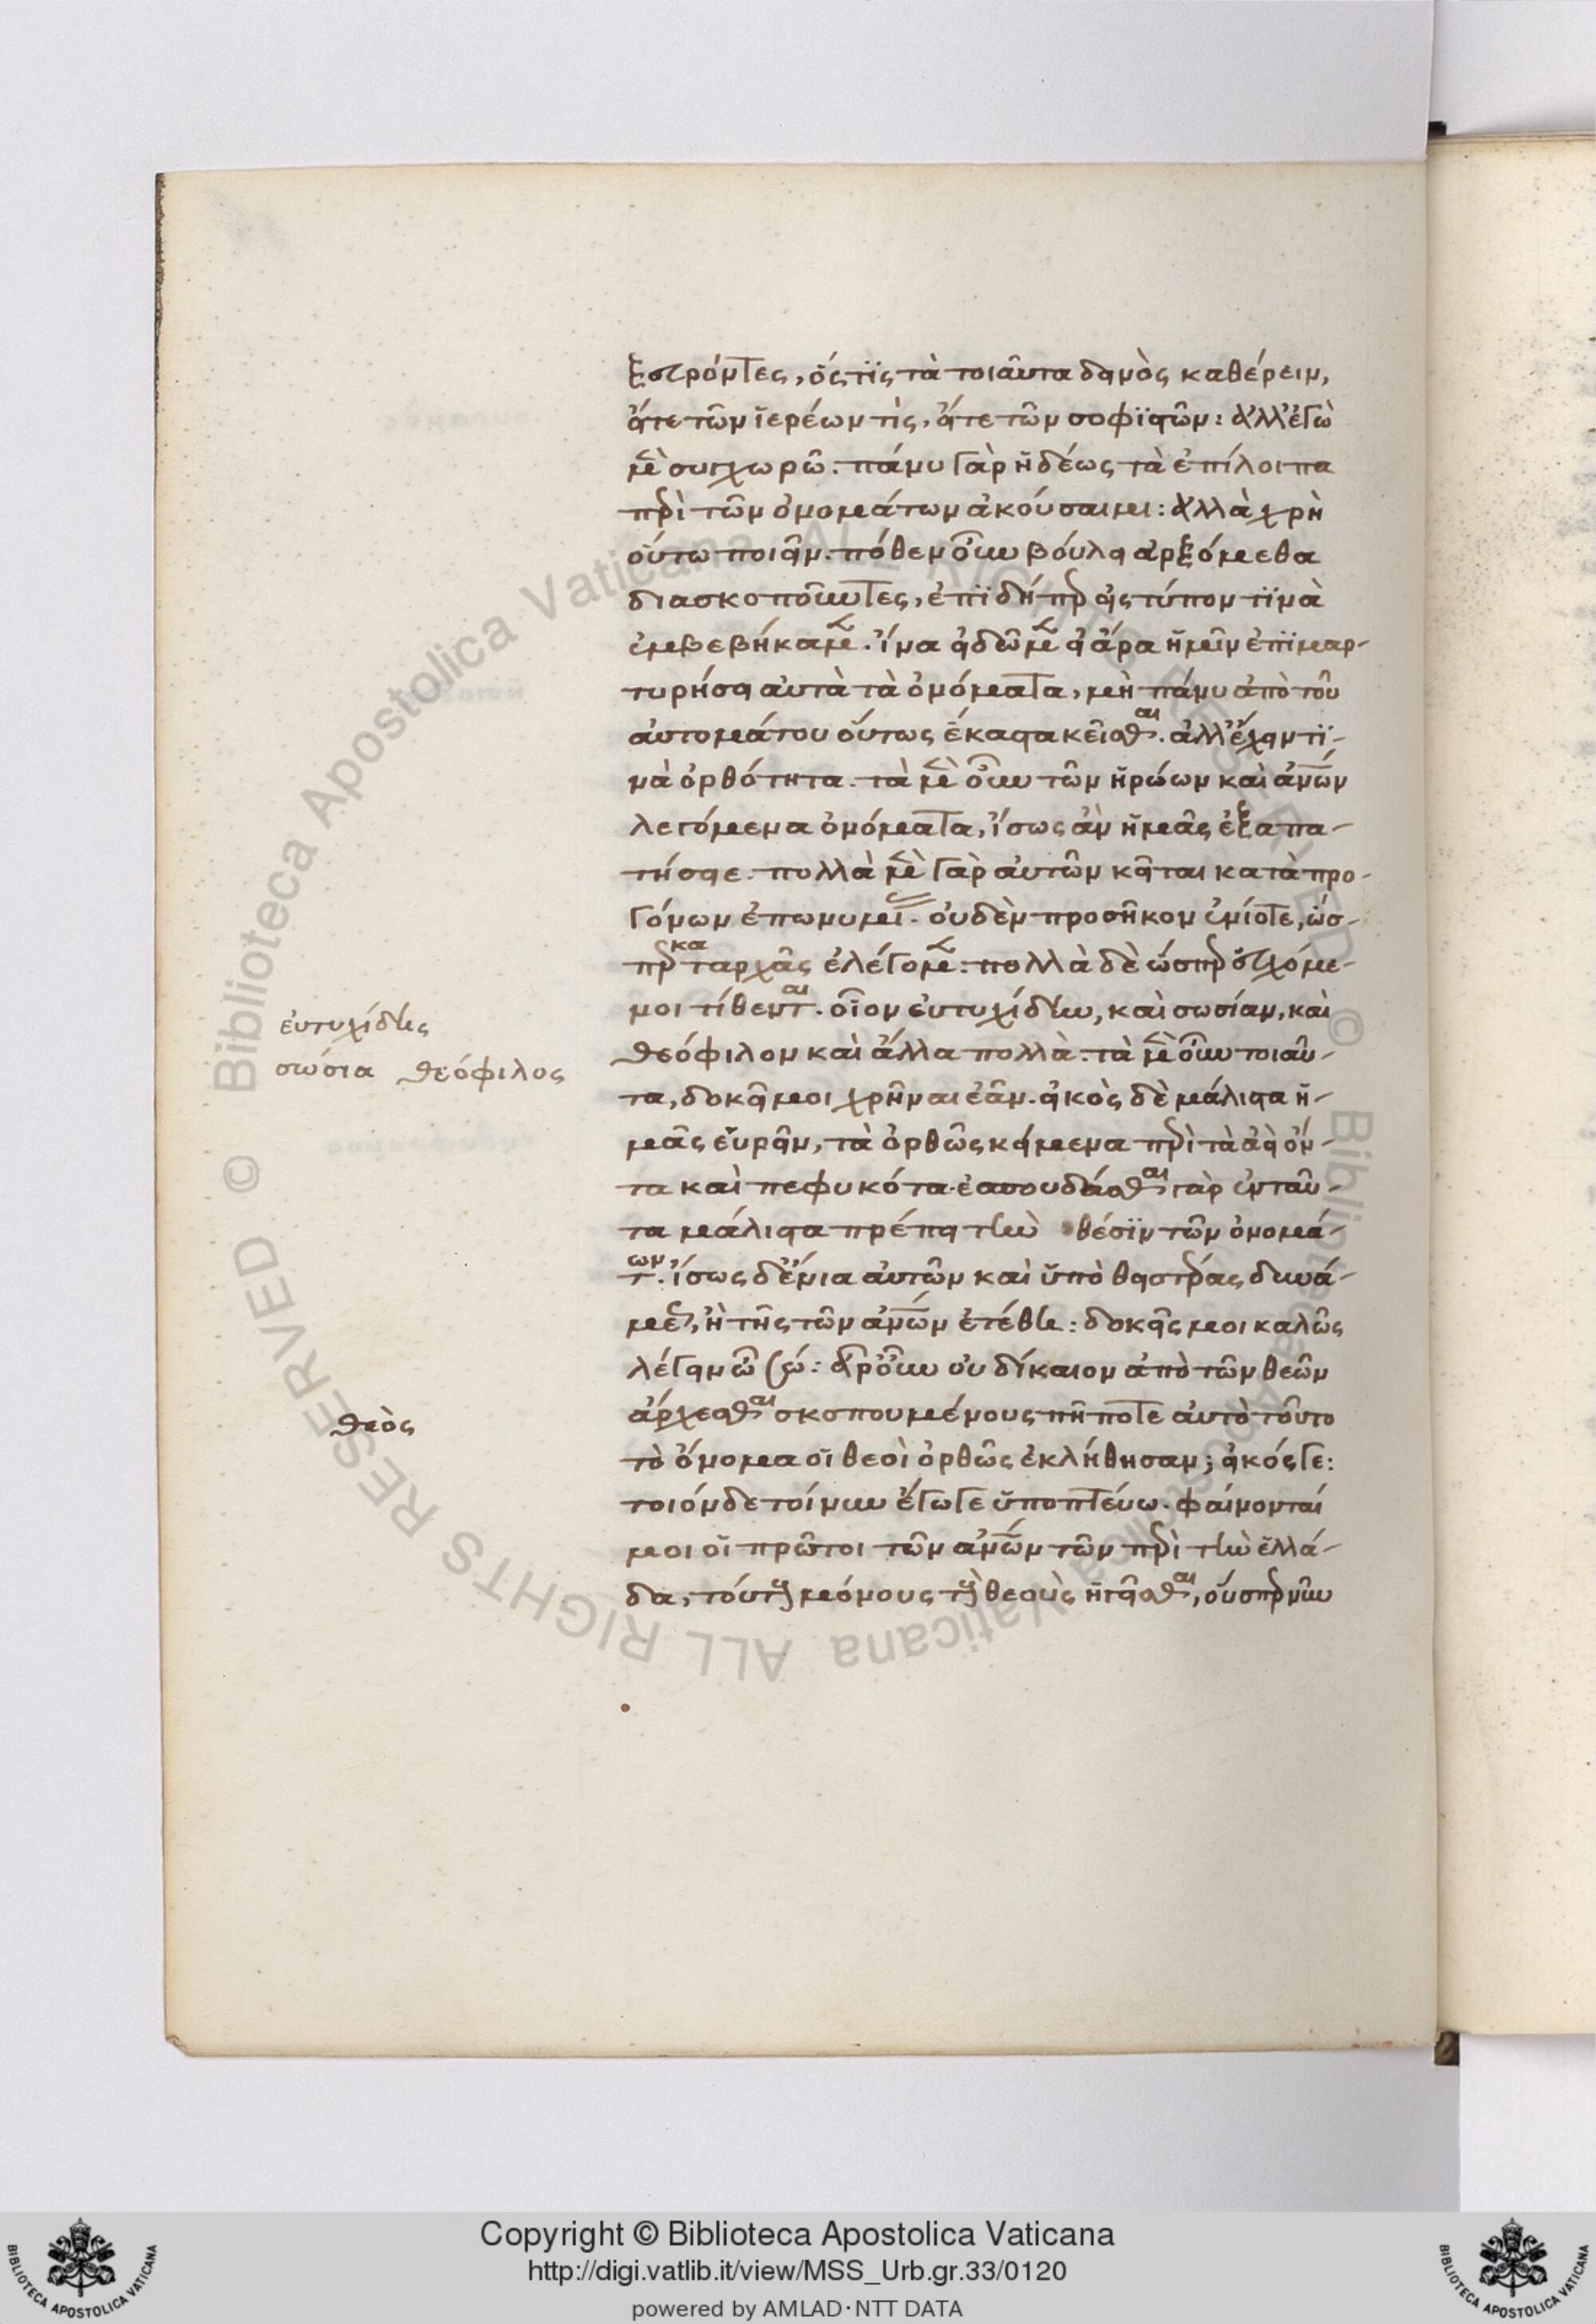 ξευρόντες, ὅστις τὰ τοιαῦτα δεινὸς καθαίρειν,
εἴτε τῶν ἱερέων τὶς, εἴτε τῶν σοφιστῶν: ἀλλ' ἐγὼ
μὲν συγχωρῶ. πάνυ γὰρ ἡδέως τὰ ἐπίλοιπα
περὶ τῶν ὀνομάτων ἀκούσαιμι: ἀλλὰ χρὴ
οὕτω ποιεῖν. πόθεν οὖν βούλει ἀρξόμεθα
διασκοποῦντες, ἐπειδήπερ εἰς τύπον τινὰ
ἐμβεβήκαμεν. ἵνα εἰδῶμεν εἰ ἄρα ἡμῖν ἐπιμαρ-
τυρήσει αὐτὰ τὰ ὀνόματα, μὴ πάνυ ἀπὸ τοῦ
αὐτομάτου οὕτως ἕκαστα κεῖσθαι. ἀλλ' ἔχειν τι-
νὰ ὀρθότητα. τὰ μὲν οὖν τῶν ἡρώων καὶ ἀνων
λεγόμενα ὀνόματα, ἴσως ἂν ἡμᾶς ἐξαπα-
τήσειε. πολλὰ μὲν γὰρ αὐτῶν κεῖται κατὰ προ-
γόνων ἐπωνυμίας. οὐδὲν προσῆκον ἐνίοτε, ὥσ-
περ κατ' ἀρχὰς ἐλέγομεν: πολλὰ δὲ ὥσπερ εὐχόμε-
νοι τίθενται. οἷον εὐτυχίδην, καὶ σωσίαν, καὶ
θεόφιλον καὶ ἄλλα πολλὰ. τὰ μὲν οὖν τοιαῦ-
τα, δοκεῖ μοι χρῆναι ἐᾶν. εἰκὸς δὲ μάλιστα ἡ-
μᾶς εὑρεῖν, τὰ ὀρθῶς κείμενα περὶ τὰ ἀεὶ ὄν-
τα καὶ πεφυκότα. ἐσπουδάσθαι γὰρ ἐνταῦ-
τα μάλιστα πρέπει τὴν θέσιν τῶν ὀνομά-
των. ἴσως δ' ἔνια αὐτῶν καὶ ὑπὸ θειοτέρας δυνά-
μεως, ἢ τῆς τῶν ἀνων ἐτέθη: δοκεῖς μοι καλῶς
λέγειν ὦ σώ: ἆρ' οὖν οὐ δίκαιον ἀπὸ τῶν θεῶν
ἄρχεσθαι σκοπουμένους πῆ ποτε αὐτὸ τοῦτο
τὸ ὄνομα οἱ θεοὶ ὀρθῶς ἐκλήθησαν; εἰκός γε:
τοιόνδε τοίνυν ἔγωγε ὑποπτεύω. φαίνονταί
μοι οἱ πρῶτοι τῶν ἀνων τῶν περὶ τὴν ἑλλά-
δα, τούτους μόνους τοὺς θεοὺς ἡγεῖσθαι, οὕσπερ νῦν
εὐτυχίδης
σώσια θεόφιλος
θεὸς
© Biblioteca Apostolica Vaticana ALL RIGHTS RESERVED
Copyright © Biblioteca Apostolica Vaticana
http://digi.vatlib.it/view/MSS_Urb.gr.33/0120
powered by AMLAD·NTT DATA
BIBLIOTECA APOSTOLICA VATICANA
BIBLIOTECA APOSTOLICA VATICANA